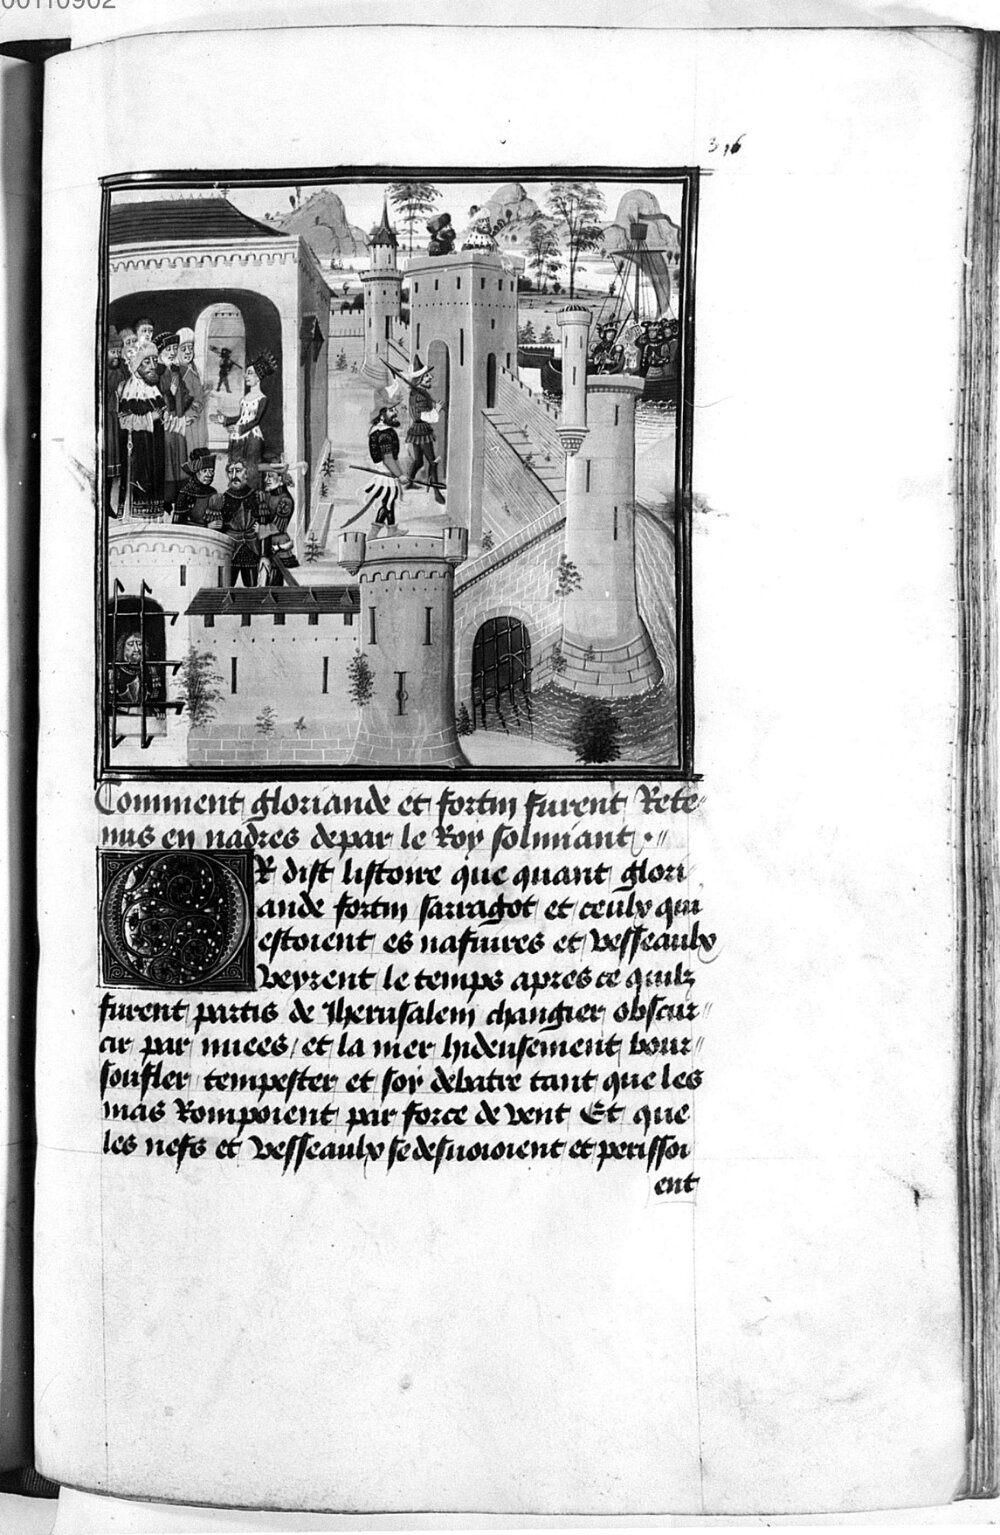 00110902
316
Comment gloriande et fortin furent Rete
nus en nadres depar le Roy soliniant
OR dist listoire que quant glori
ande fortin sarragot et ceulx qui
estoient es nafuires et vesseaulx
veyrent le temps apres ce quilz
furent partis de Iherusalem changier obscur
cir par nuees / et la mer hideusement bour
soufler tempester et soy debatre tant que les
mas Rompoient par force de vent Et que
les nefs et vesseaulx se desuoioient et perissoi
ent